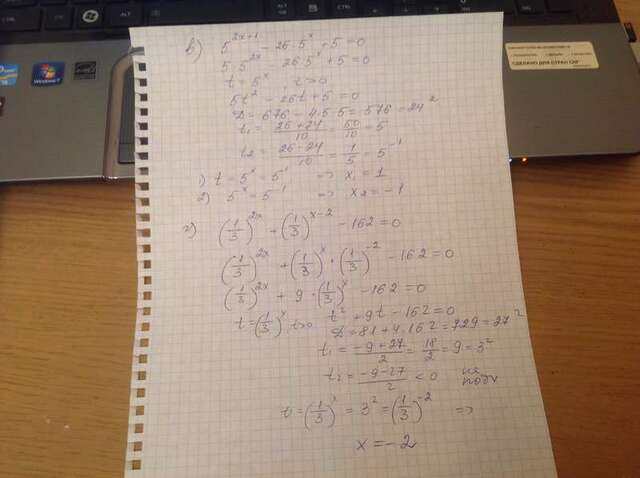 в) 5^{2x+1} - 26·5^x + 5 = 0
5·5^{2x} 26·5^x + 5 = 0
t = 5^x, t > 0
5t^2 - 26t + 5 = 0
D = 676 - 4·5·5 = 576 = 24^2
t_1 = \frac{26+24}{10} = \frac{50}{10} = 5
t_2 = \frac{26-24}{10} = \frac{1}{5} = 5^{-1}
1) t = 5^x = 5^1 => x_1 = 1
2) 5^x = 5^{-1} => x_2 = -1
г) (\frac{1}{3})^{2x} + (\frac{1}{3})^{x-2} - 162 = 0
(\frac{1}{3})^{2x} + (\frac{1}{3})^x · (\frac{1}{3})^{-2} - 162 = 0
(\frac{1}{3})^{2x} + 9·(\frac{1}{3})^x - 162 = 0
t = (\frac{1}{3})^x, t>0 t^2 + 9t - 162 = 0
D = 81 + 4·162 = 729 = 27^2
t_1 = \frac{-9+27}{2} = \frac{18}{2} = 9 = 3^2
t_2 = \frac{-9-27}{2} < 0 не подх
t = (\frac{1}{3})^x = 3^2 = (\frac{1}{3})^{-2} =>
x = -2
Windows 7
СДЕЛАНО ДЛЯ СТРАН СНГ
CTRL
ALT
ALT GR
CTRL